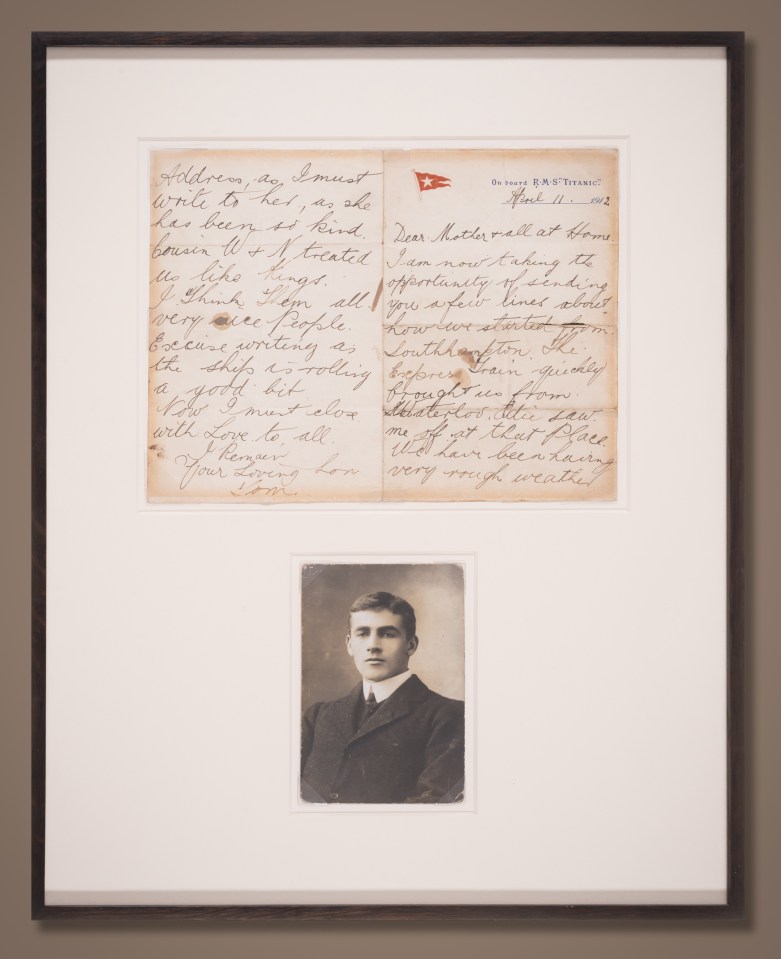 On board R.M.S. "TITANIC".
April 11. 1912
Dear Mother & all at Home.
I am now taking the
opportunity of sending
you a few lines about
how we started from
Southhampton. The
Express Train quickly
brought us from
Waterloo. saw
me off at that Place.
We have been having
very rough weather
Address, as I must
write to her, as she
has been so kind.
Cousin W & N treated
us like Kings.
I Think Them all
very nice People.
Excuse writing as
the ship is rolling
a good bit
Now I must close
with Love to all.
I Remain
Your Loving Son
Tom.